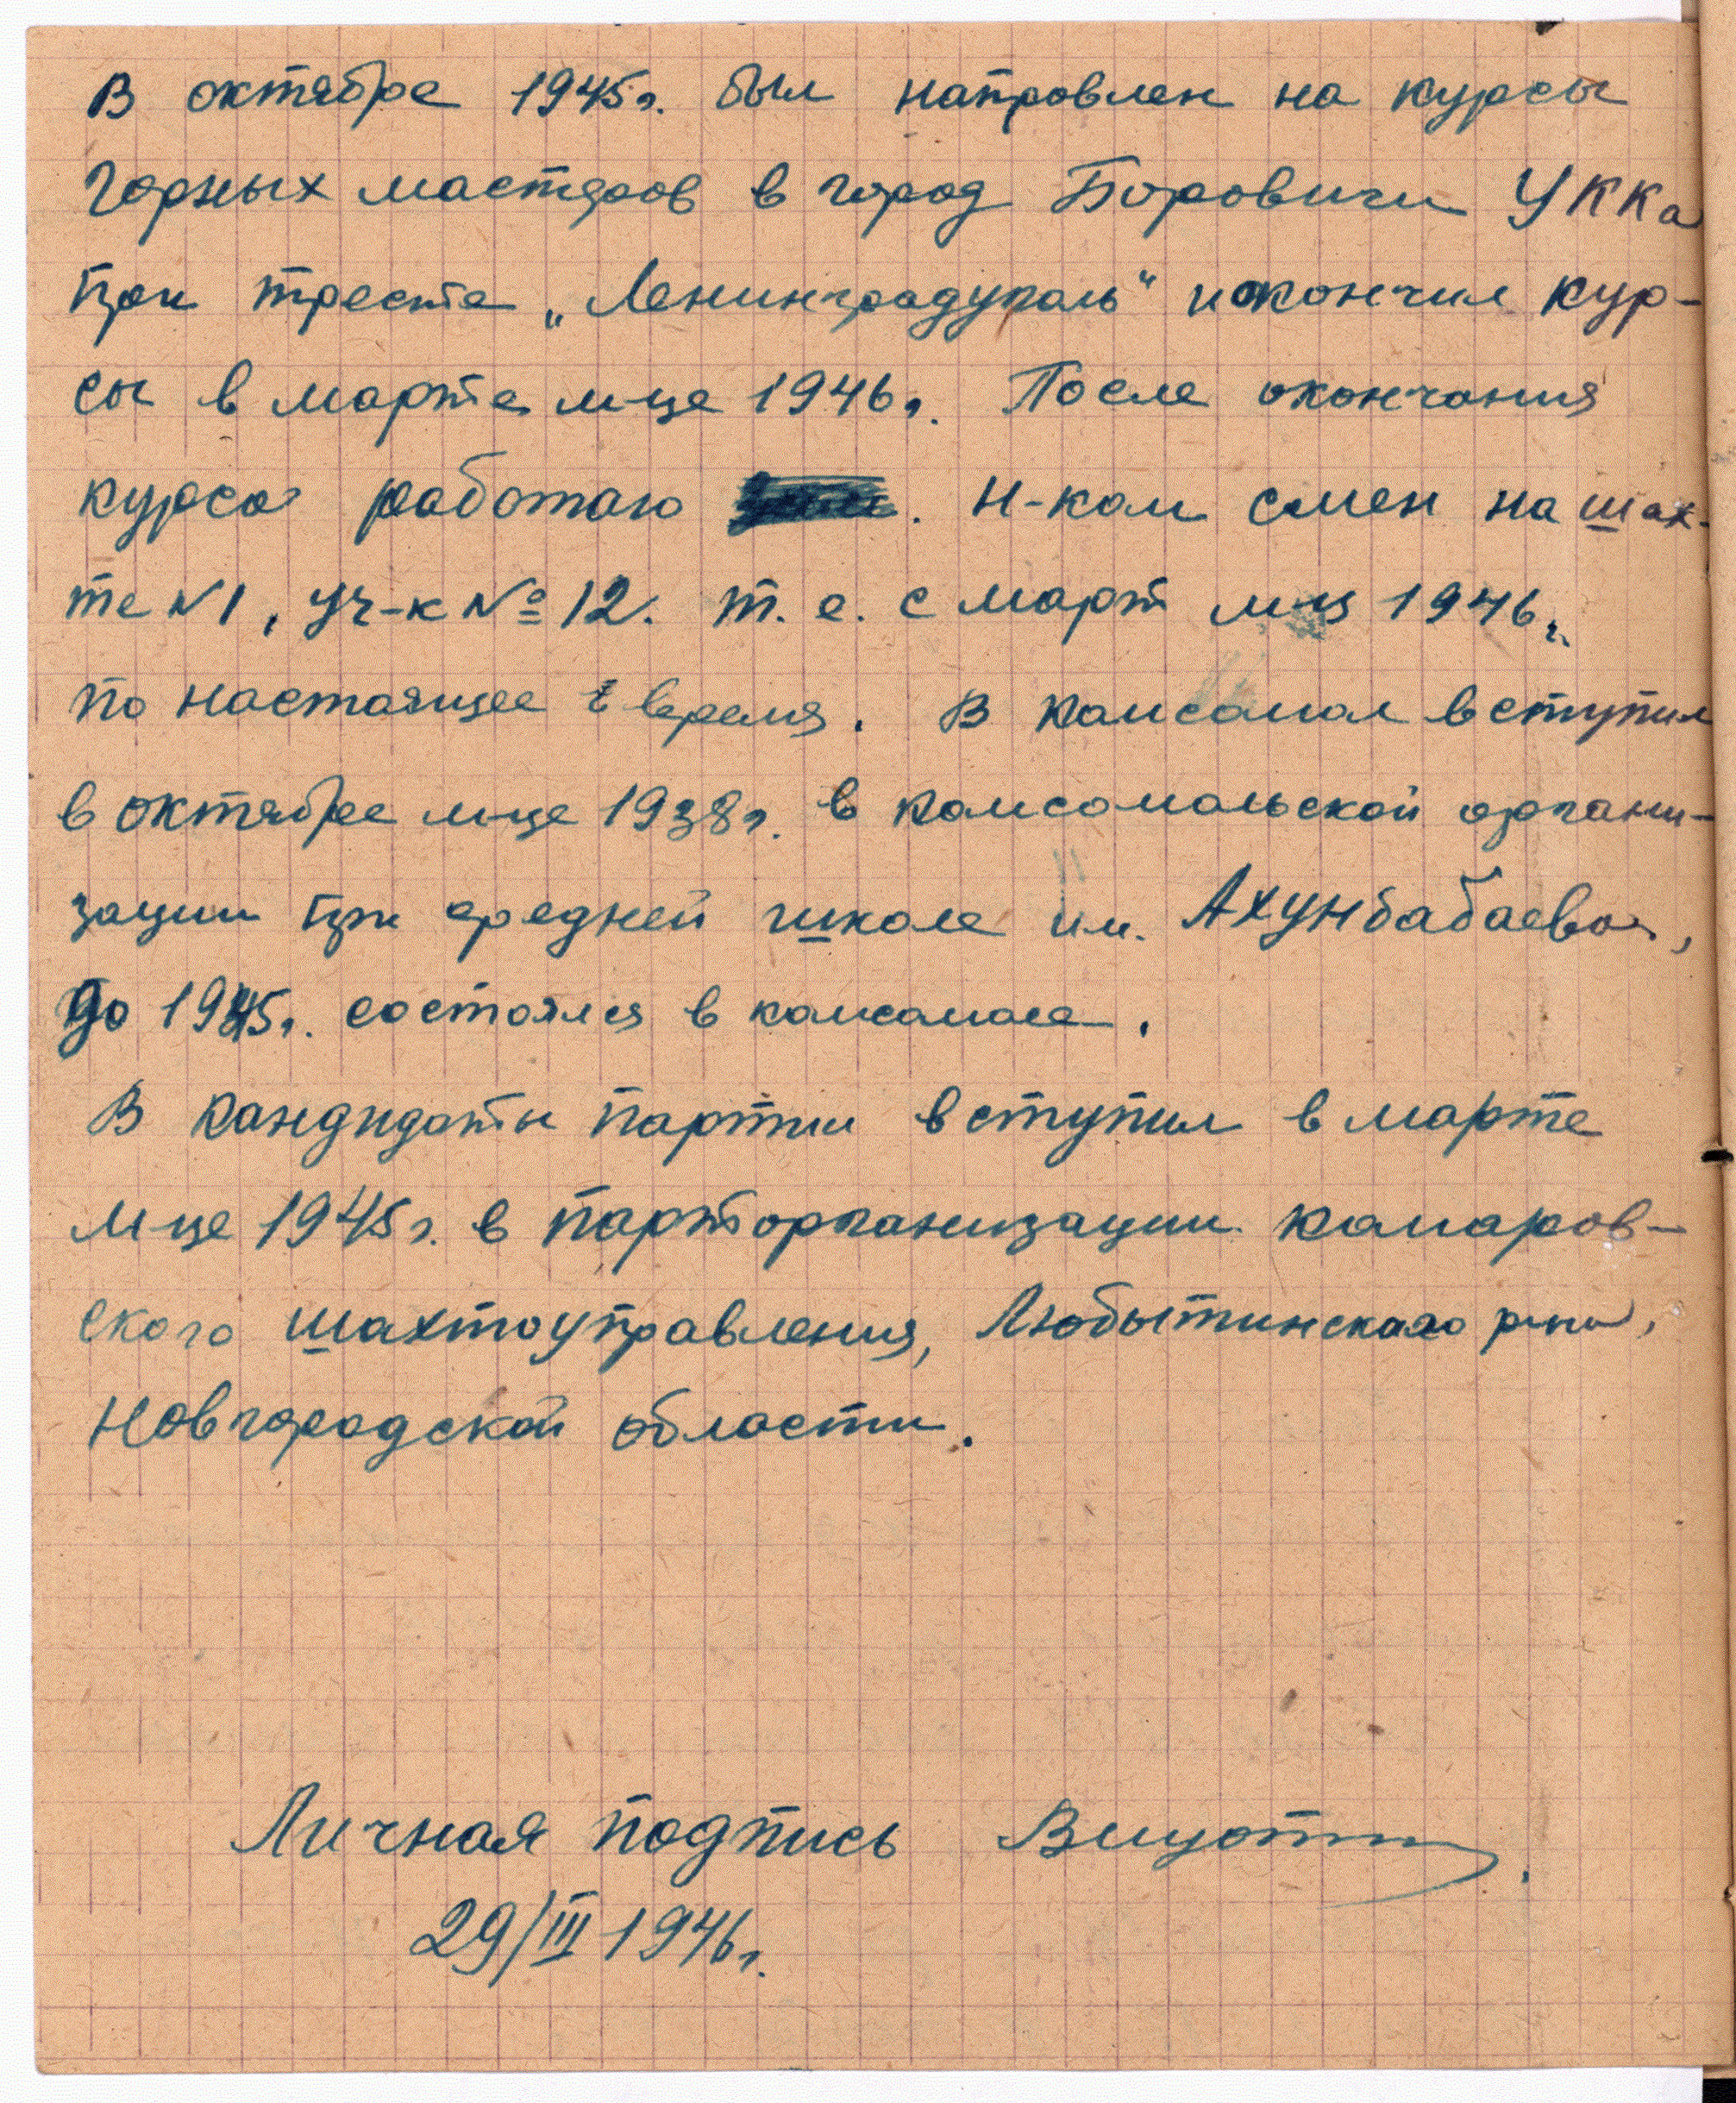 В октябре 1945г. был направлен на курсы
горных мастеров в город Боровичи УККа
при тресте „Ленинградуголь" и окончил кур-
сы в марте м-це 1946г. После окончания
курса работаю н-ком смен на шах-
те №1, уч-к № 12. т. е. с март м-ц 1946г.
по настоящее время. В комсомол вступил
в октябре м-це 1938г. в комсомольской органи-
зации при средней школе им. Ахунбабаева,
до 1945г. состоялся в комсомоле.
В кандидаты партии вступил в марте
м-це 1945г. в парторганизации комаров-
ского шахтоуправления, Любытинского р-на,
Новгородской области.
Личная подпись
29/III 1946г.